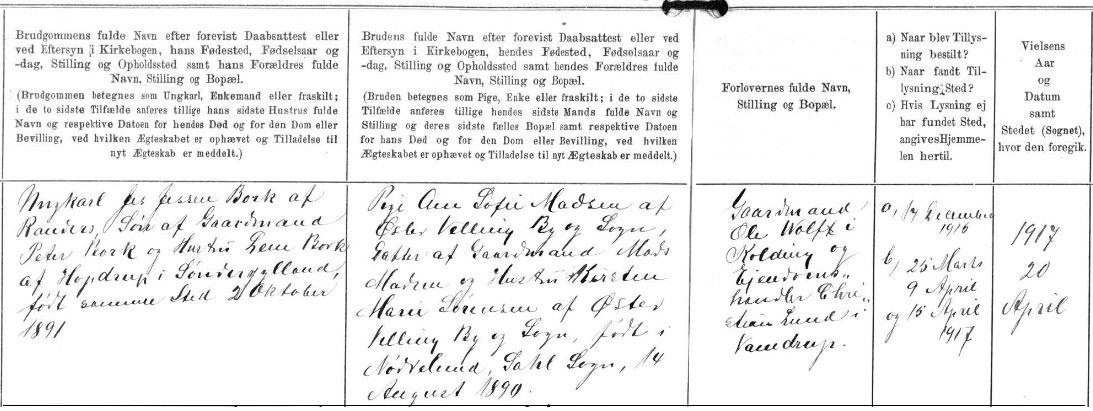 Brudgommens fulde Navn efter forevist Daabsattest eller
ved Eftersyn i Kirkebogen, hans Fødested, Fødselsaar og
-dag, Stilling og Opholdssted samt hans Forældres fulde
Navn, Stilling og Bopæl.
(Brudgommen betegnes som Ungkarl, Enkemand eller fraskilt;
i de to sidste Tilfælde anføres tillige hans sidste Hustrus fulde
Navn og respektive Datoen for hendes Død og for den Dom eller
Bevilling, ved hvilken Ægteskabet er ophævet og Tilladelse til
nyt Ægteskab er meddelt.)
Ungkarl Jes Jessen Bork af
Randers, Søn af Gaardmand
Peter Bork og Hustru Lene Bork
af Hopdrup i Sønderjylland,
født samme Sted 2 Oktober
1891
Brudens fulde Navn efter forevist Daabsattest eller ved
Eftersyn i Kirkebogen, hendes Fødested, Fødselsaar og
-dag, Stilling og Opholdssted samt hendes Forældres fulde
Navn, Stilling og Bopæl.
(Bruden betegnes som Pige, Enke eller fraskilt; i de to sidste
Tilfælde anføres tillige hendes sidste Mands fulde Navn og
Stilling og deres sidste fælles Bopæl samt respektive Datoen
for hans Død og for den Dom eller Bevilling, ved hvilken
Ægteskabet er ophævet og Tilladelse til nyt Ægteskab er meddelt.)
Pige Ane Sofie Madsen af
Øster Velling By og Sogn,
Datter af Gaardmand Mads
Madsen og Hustru Kirsten
Marie Sørensen af Øster
Velling By og Sogn, født i
Nødvelund, Sahl Sogn, 14
August 1890.
Forlovernes fulde Navn,
Stilling og Bopæl.
Gaardmand
Ole Wolff i
Kolding og
Ejendoms-
handler Chri-
stian Lund i
Vamdrup.
a) Naar blev Tillys-
ning bestilt?
b) Naar fandt Til-
lysning Sted?
c) Hvis Lysning ej
har fundet Sted,
angives Hjemme-
len hertil.
a, 17 December
1916
b, 25 Marts
9 April
og 15 April
1917
Vielsens
Aar
og
Datum
samt
Stedet (Sognet),
hvor den foregik.
1917
20
April